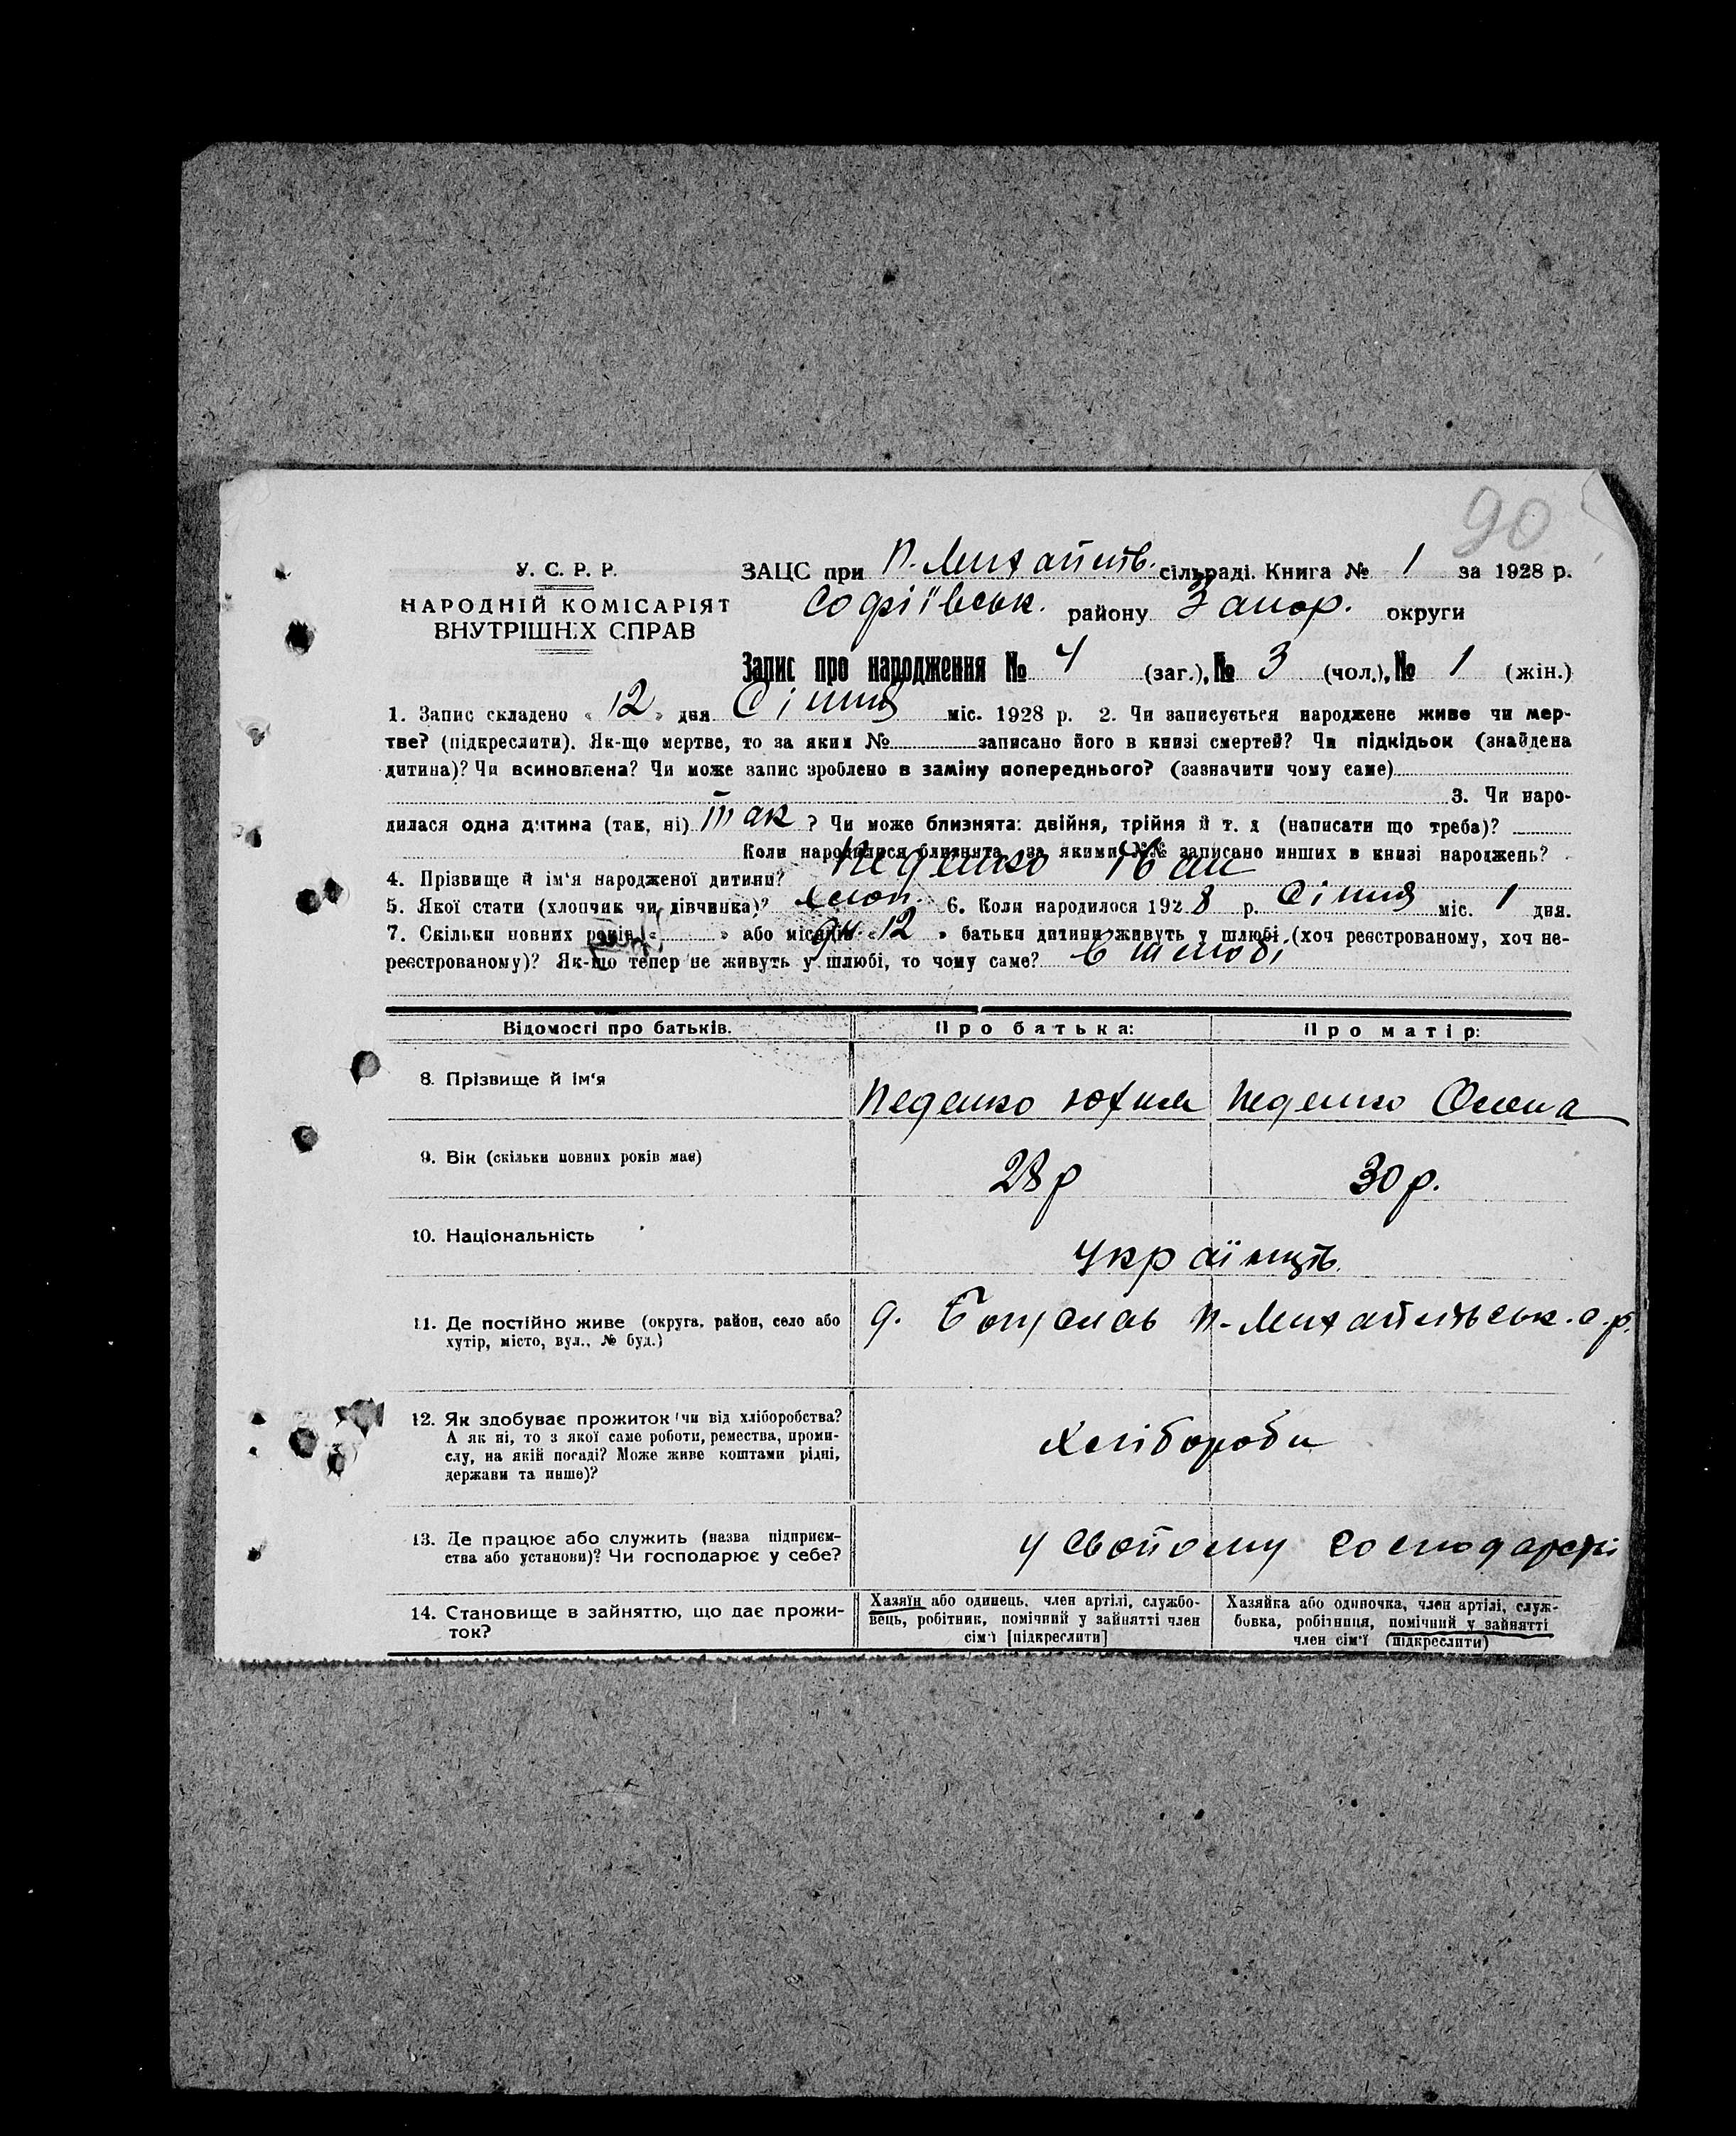 90
У. С. Р. Р.
НАРОДНІЙ КОМІСАРІЯТ
ВНУТРІШНІХ СПРАВ
ЗАЦС при П. Михайлів. сільраді. Книга № 1 за 1928 р.
Софіївськ. району Запор. округи
Запис про народження № 4 (заг.), № 3 (чол.), № 1 (жін.)
1. Запис складено « 12 » дня Січня міс. 1928 р. 2. Чи записується народжене живе чи мер-
тве? (підкреслити). Як-що мертве, то за яким № записано його в книзі смертей? Чи підкідьок (знайдена
дитина)? Чи всиновлена? Чи може запис зроблено в заміну попереднього? (зазначити чому саме)
3. Чи наро-
дилася одна дитина (так, ні) Так ? Чи може близнята: двійня, трійня й т. д (написати що треба)?
Коли народилися близнята, за якими №№ записано инших в книзі народжень?
4. Прізвище й ім'я народженої дитини? Педенко Іван
5. Якої стати (хлопчик чи дівчинка)? хлоп. 6. Коли народилося 1928 р. Січня міс. 1 дня.
7. Скільки повних років « » або місяців « 12 » батьки дитини живуть у шлюбі (хоч реєстрованому, хоч не-
реєстрованому)? Як-що тепер не живуть у шлюбі, то чому саме? в шлюбі
Відомості про батьків. Про батька: Про матір:
8. Прізвище й ім'я Педенко Юхим Педенко Олена
9. Вік (скільки повних років має) 28 р 30 р.
10. Національність Українців.
11. Де постійно живе (округа, район, село або
хутір, місто, вул., № буд.)
П-Михайлівськ. с.р.
12. Як здобуває прожиток (чи від хліборобства?
А як ні, то з якої саме роботи, ремества, проми-
слу, на якій посаді? Може живе коштами рідні,
держави та инше)?
Хлібороби
13. Де працює або служить (назва підприєм-
ства або установи)? Чи господарює у себе?
у свойому господарстві
14. Становище в зайняттю, що дає прожи-
ток?
Хазяїн або одинець, член артілі, службо-
вець, робітник, помічний у зайнятті член
сім'ї [підкреслити]
Хазяйка або одиночка, член артілі, служ-
бовка, робітниця, помічний у зайнятті
член сім'ї (підкреслити)